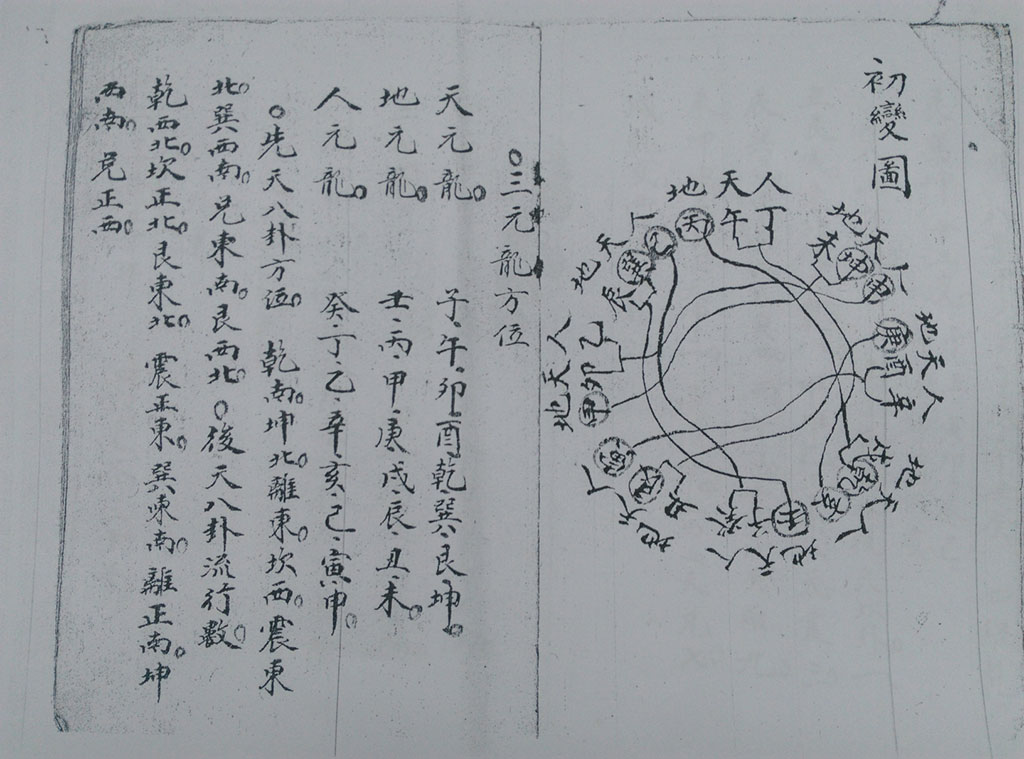 初變圖
地天人
丙午丁
地天人
未坤申
地天人
庚酉辛
地天人
戌乾亥
地天人
壬子癸
地天人
丑艮寅
地天人
甲卯乙
地天人
辰巽巳
○三元龍方位
天元龍。 子、午、卯、酉、乾、巽、艮、坤。
地元龍。 壬、丙、甲、庚、戌、辰、丑、未。
人元龍。 癸、丁、乙、辛、亥、巳、寅、申。
○先天八卦方位。 乾南。坤北。離東。坎西。震東
北。巽西南。兌東南。艮西北。○後天八卦流行數。
乾西北。坎正北。艮東北。 震正東。巽東南。離正南。坤
西南。兌正西。